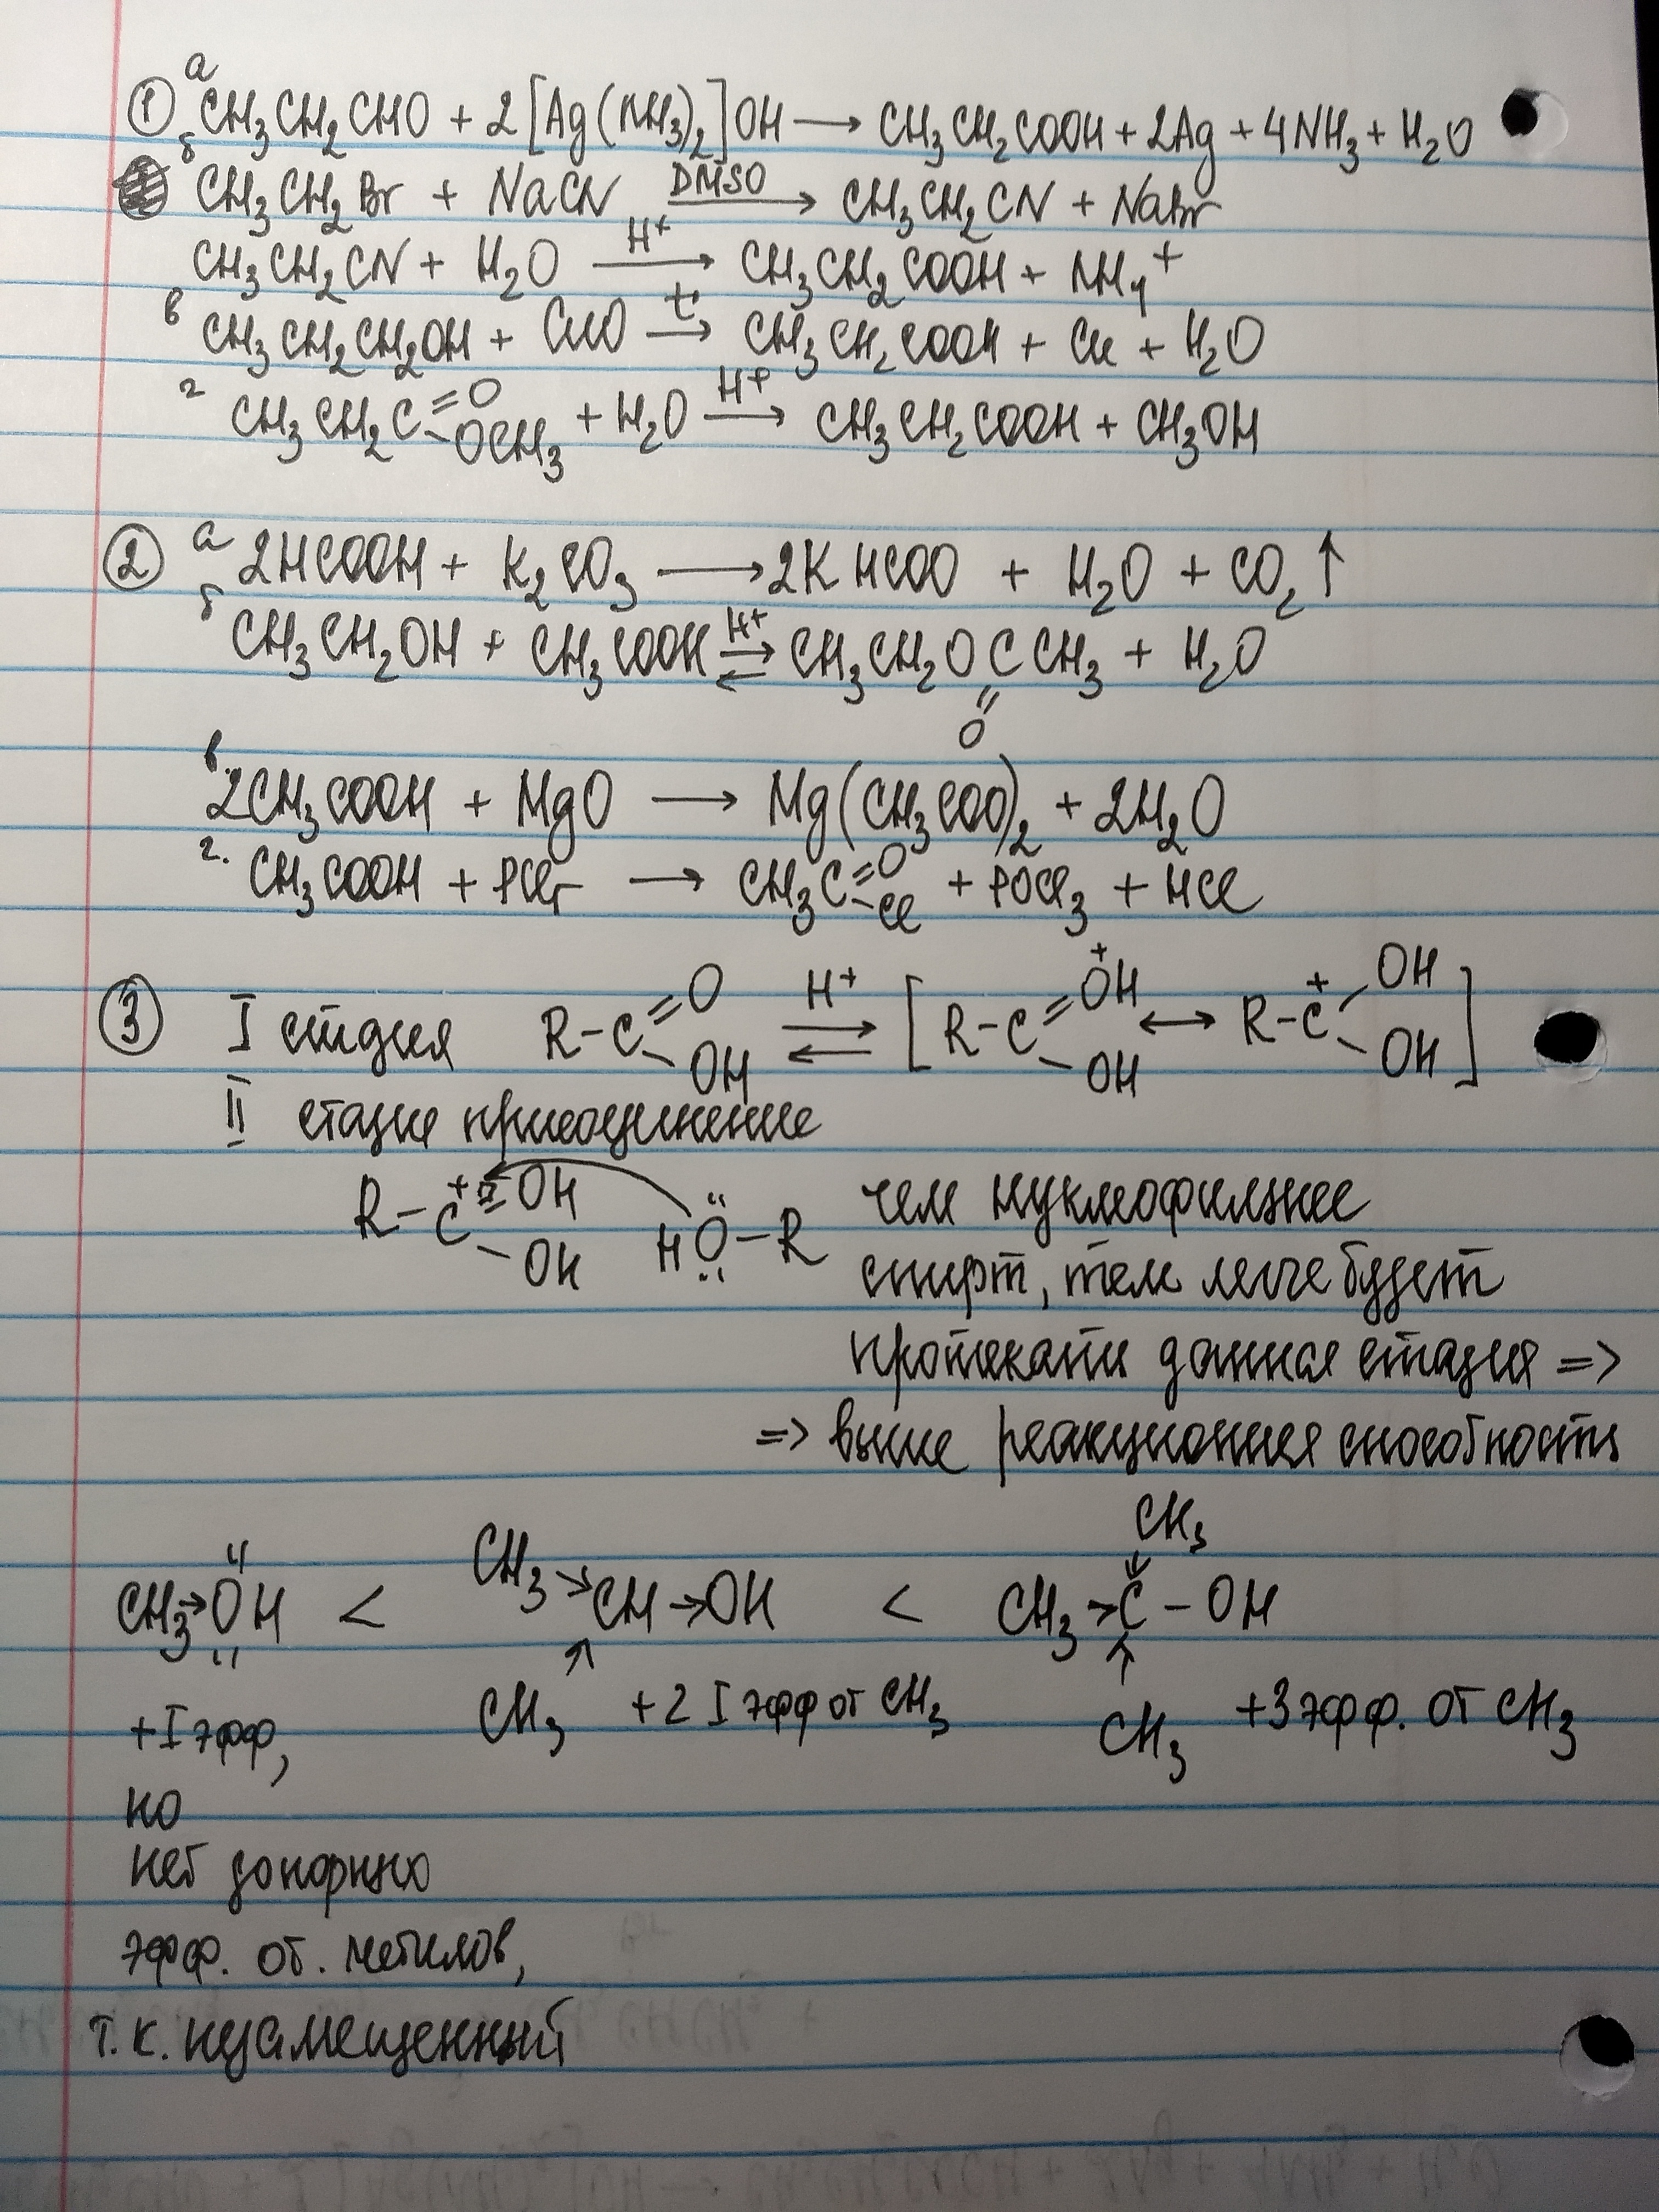 ① а CH₃CH₂CHO + 2[Ag(NH₃)₂]OH ⟶ CH₃CH₂COOH + 2Ag + 4NH₃ + H₂O
б CH₃CH₂Br + NaCN DMSO⟶ CH₃CH₂CN + NaBr
CH₃CH₂CN + H₂O H⁺⟶ CH₃CH₂COOH + NH₄⁺
в CH₃CH₂CH₂OH + CuO t°⟶ CH₃CH₂COOH + Cu + H₂O
г CH₃CH₂C(=O)–OCH₃ + H₂O H⁺⟶ CH₃CH₂COOH + CH₃OH
② а 2HCOOH + K₂CO₃ ⟶ 2KHCOO + H₂O + CO₂↑
б CH₃CH₂OH + CH₃COOH H⁺⇌ CH₃CH₂OCCH₃ + H₂O
O
в. 2CH₃COOH + MgO ⟶ Mg(CH₃COO)₂ + 2H₂O
г. CH₃COOH + PCl₅ ⟶ CH₃C(=O)–Cl + POCl₃ + HCl
③ I стадия R–C(=O)–OH H⁺⇌ [R–C(=O⁺H)–OH ⟷ R–C⁺(–OH)–OH]
II стадия присоединение
R–C⁺(OH)–OH HÖ–R чем нуклеофильнее
спирт, тем легче будет
протекать данная стадия =>
=> выше реакционная способность
CH₃
CH₃→ÖH < CH₃→CH→OH < CH₃→C–OH
CH₃ CH₃
+I эфф, +2 I эфф от CH₃ +3 эфф. от CH₃
но
нет донорных
эфф. от. метилов,
т.к. незамещенный